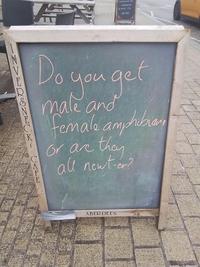 Do you get
male and
female amphibians
or are they
all newt-er?
INVERSNECKY CAFE
ABERDEEN